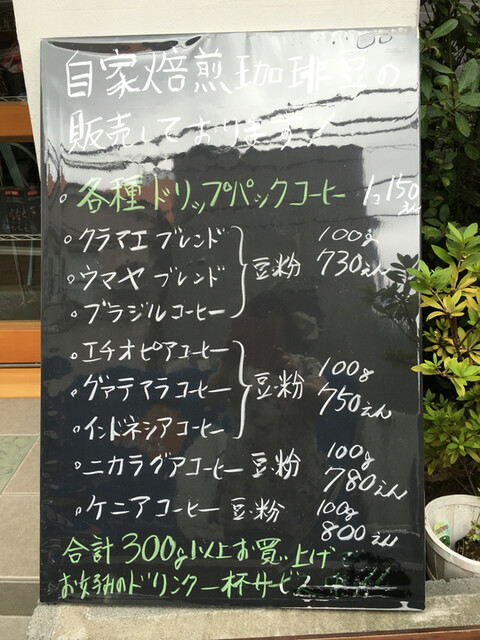 自家焙煎珈琲豆の
販売しております!
。各種ドリップパックコーヒー 1コ150えん
。クラマエブレンド
。ウマヤブレンド 豆・粉 100g 730えん
。ブラジルコーヒー
。エチオピアコーヒー
。グァテマラコーヒー 豆・粉 100g 750えん
。インドネシアコーヒー
。ニカラグアコーヒー 豆・粉 100g 780えん
。ケニアコーヒー 豆・粉 100g 800えん
合計300g以上お買い上げ
お好みのドリンク一杯サービ